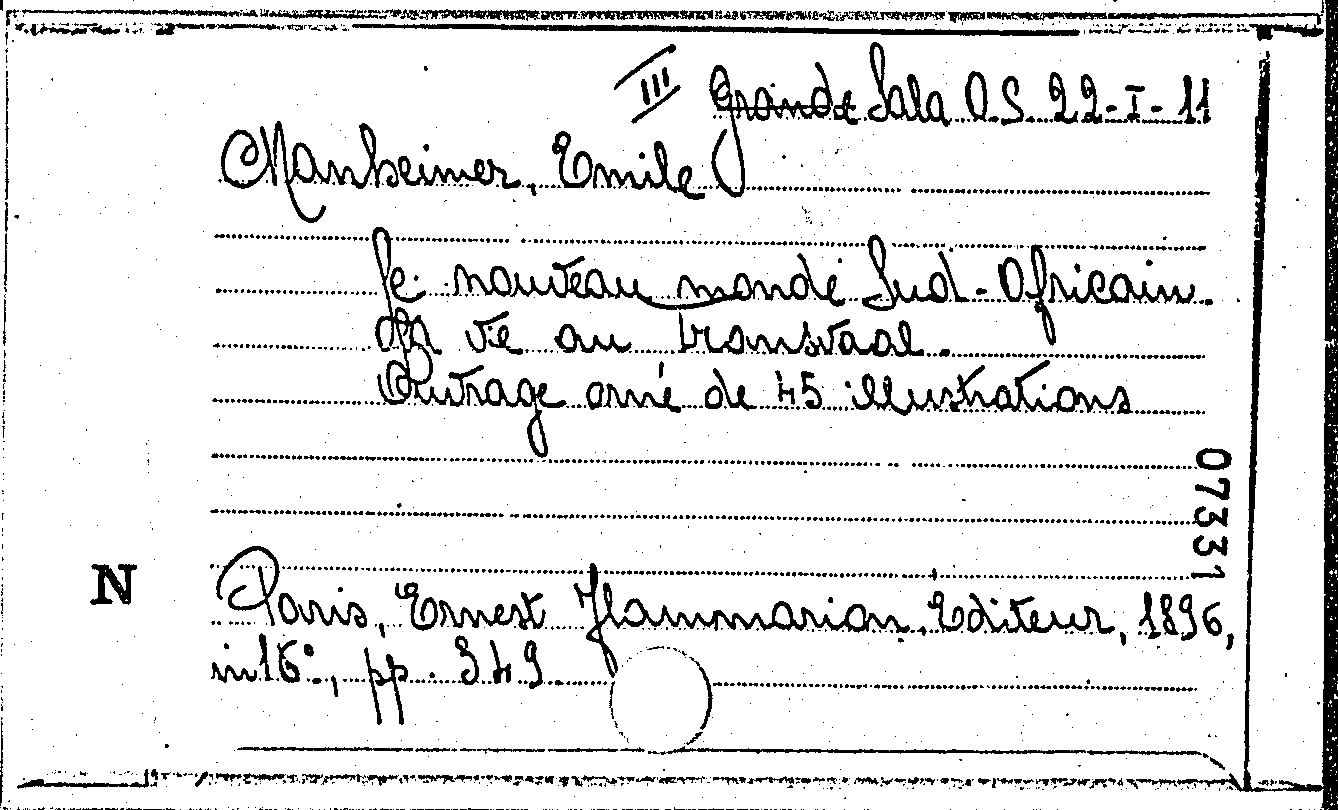 III Grande Sala O.S. 22-I-11
Manheimer, Emile
Le nouveau monde Sud-Africain.
La vie au transvaal.
Ouvrage orné de 45 illustrations
07331
N
Paris, Ernest Flammarion, Editeur, 1896,
in 16°, pp. 349.